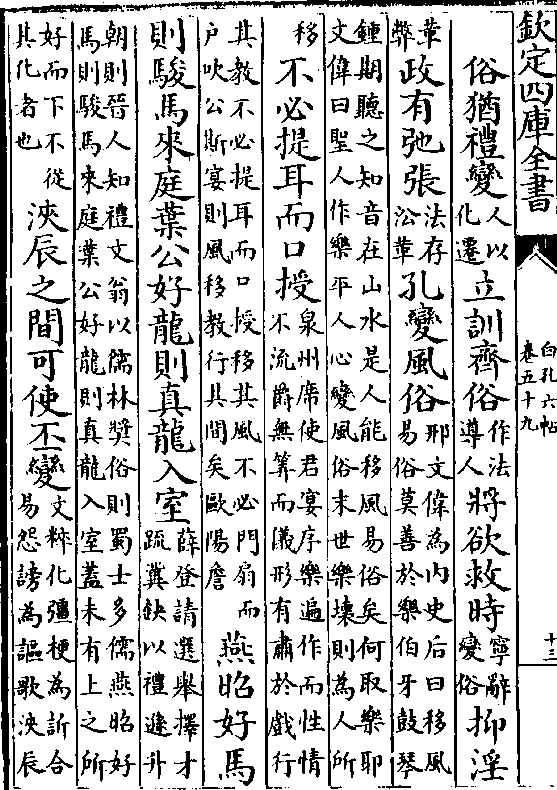 欽定四庫全書
白孔六帖
卷五十九
十三
俗猶禮變人以化遷立訓齊俗作法導人將欲救時寧辭變俗抑淫
革弊政有弛張法存沿革孔變風俗邢文偉為内史后曰移風易俗莫善於樂伯牙鼓琴
鍾期聽之知音在山水是人能移風易俗矣何取樂耶
文偉曰聖人作樂平人心變風俗末世樂壞則為人所
移不必提耳而口授泉州席使君宴序樂遍作而性情不流爵無筭而儀形有肅於戲行
其教不必提耳而口授移其風不必門扇而户吹公斯宴則風移教行其間矣歐陽詹燕昭好馬
則駿馬來庭葉公好龍則真龍入室薛登請選舉擇才疏冀缺以禮遜升
朝則晉人知禮文翁以儒林奬俗則蜀士多儒燕昭好
馬則駿馬來庭葉公好龍則真龍入室蓋未有上之所
好而下不從其化者也浹辰之間可使丕變文粹化彊梗為訢合易怨謗為謳歌浹辰